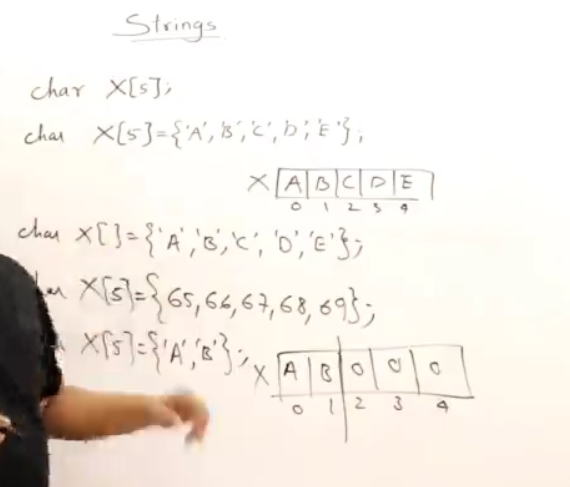 Strings
char X[5];
char X[5]={'A','B','C','D','E'};
X A B C D E
0 1 2 3 4
char X[]={'A','B','C','D','E'};
X[5]={65,66,67,68,69};
X[5]={'A','B'};
X A B 0 0 0
0 1 2 3 4